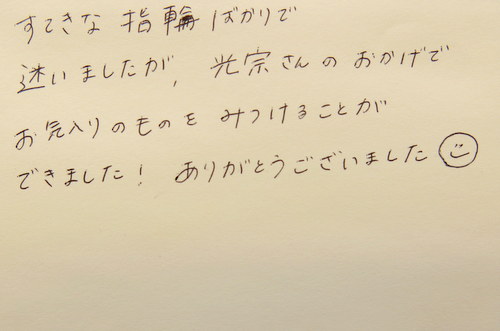 すてきな指輪ばかりで
迷いましたが、光宗さんのおかげで
お気入りのものをみつけることが
できました！ ありがとうございました